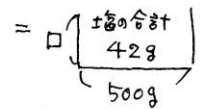 = □ 塩の合計
42g
500g